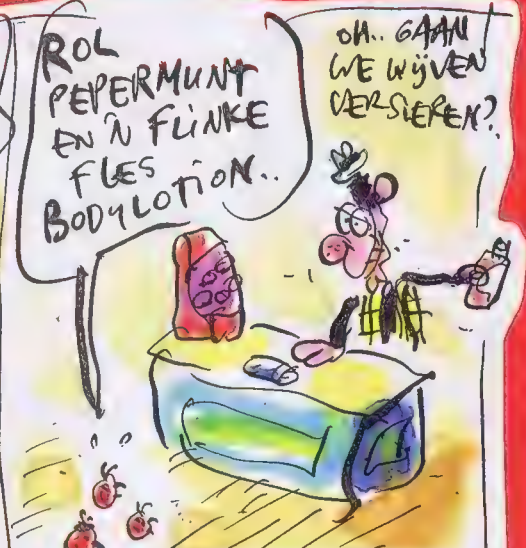 ROL
PEPERMUNT
EN 'N FLINKE
FLES
BODYLOTION..
OH.. GAAN
WE WIJVEN
VERSIEREN?